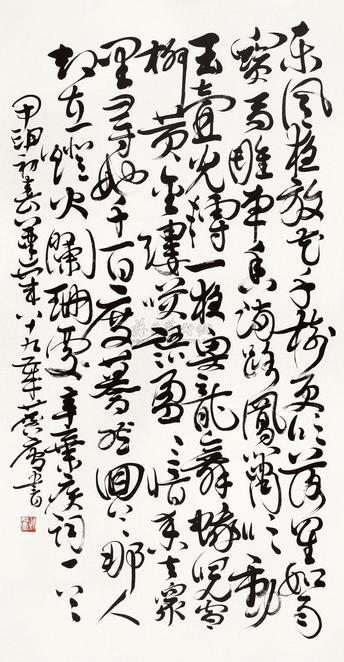 东風夜放花千树更吹落星如雨
寶馬雕車香满路鳳簫聲動
玉壺光轉一夜魚龍舞蛾兒雪
柳黄金縷笑語盈盈暗香去衆
里尋他千百度驀然回首那人
却在燈火闌珊處辛棄疾詞一首
甲初春八十九書